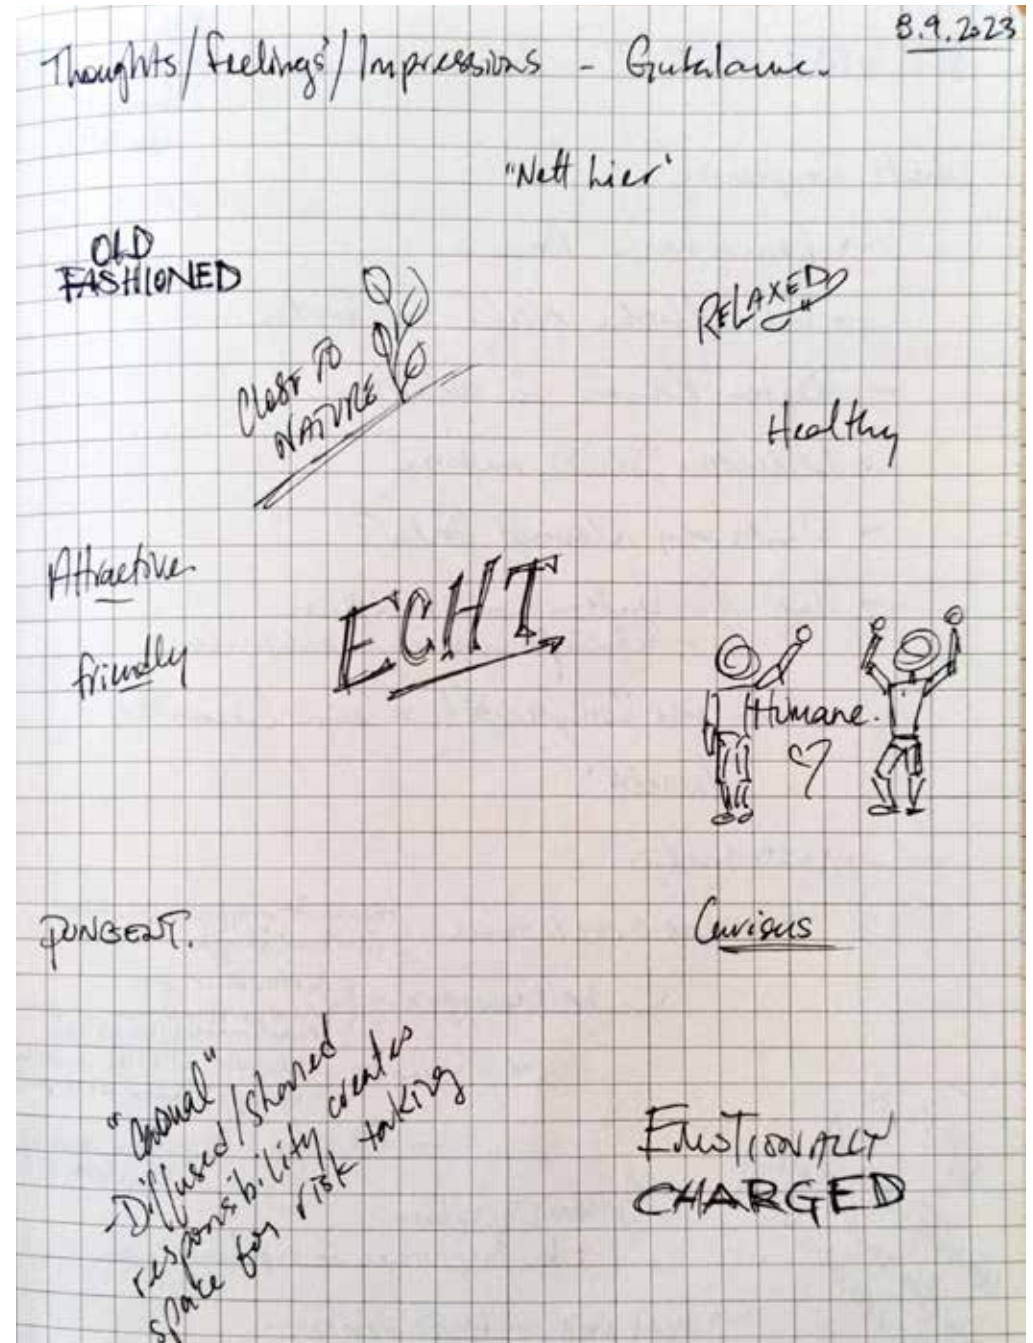 8.9.2023
Thoughts/feelings/Impressions -
"Nett hier"
OLD
FASHIONED
RELAXED
CLOSE TO
NATURE
Healthy
Attractive
friendly
ECHT
Humane.
PUNGENT.
Curious
"Casual"
- Diffused/shared
responsibility creates
space for risk taking
EMOTIONALLY
CHARGED